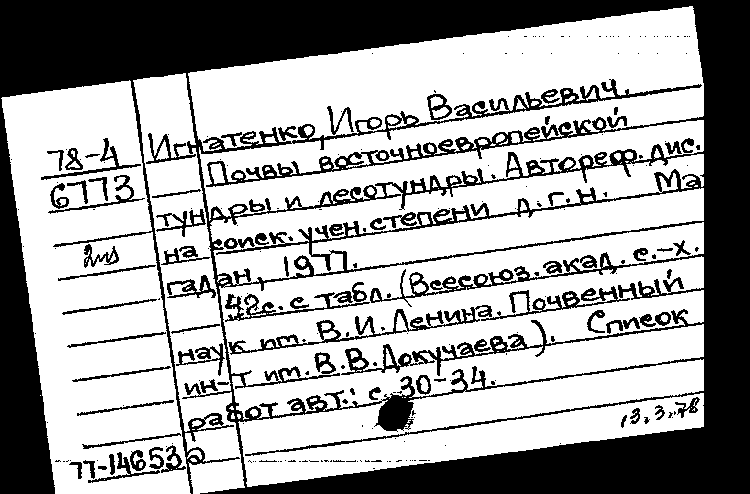 78-4
6773
2 экз
Игнатенко, Игорь Васильевич.
Почвы восточноевропейской
тундры и лесотундры. Автореф. дис.
на соиск. учен. степени д.г.н. Ма-
гадан, 1977.
42с. с табл. (Всесоюз. акад. с.-х.
наук им. В.И. Ленина. Почвенный
ин-т им. В.В. Докучаева). Список
работ авт.: с 30-34.
77-14653а
13.3.78